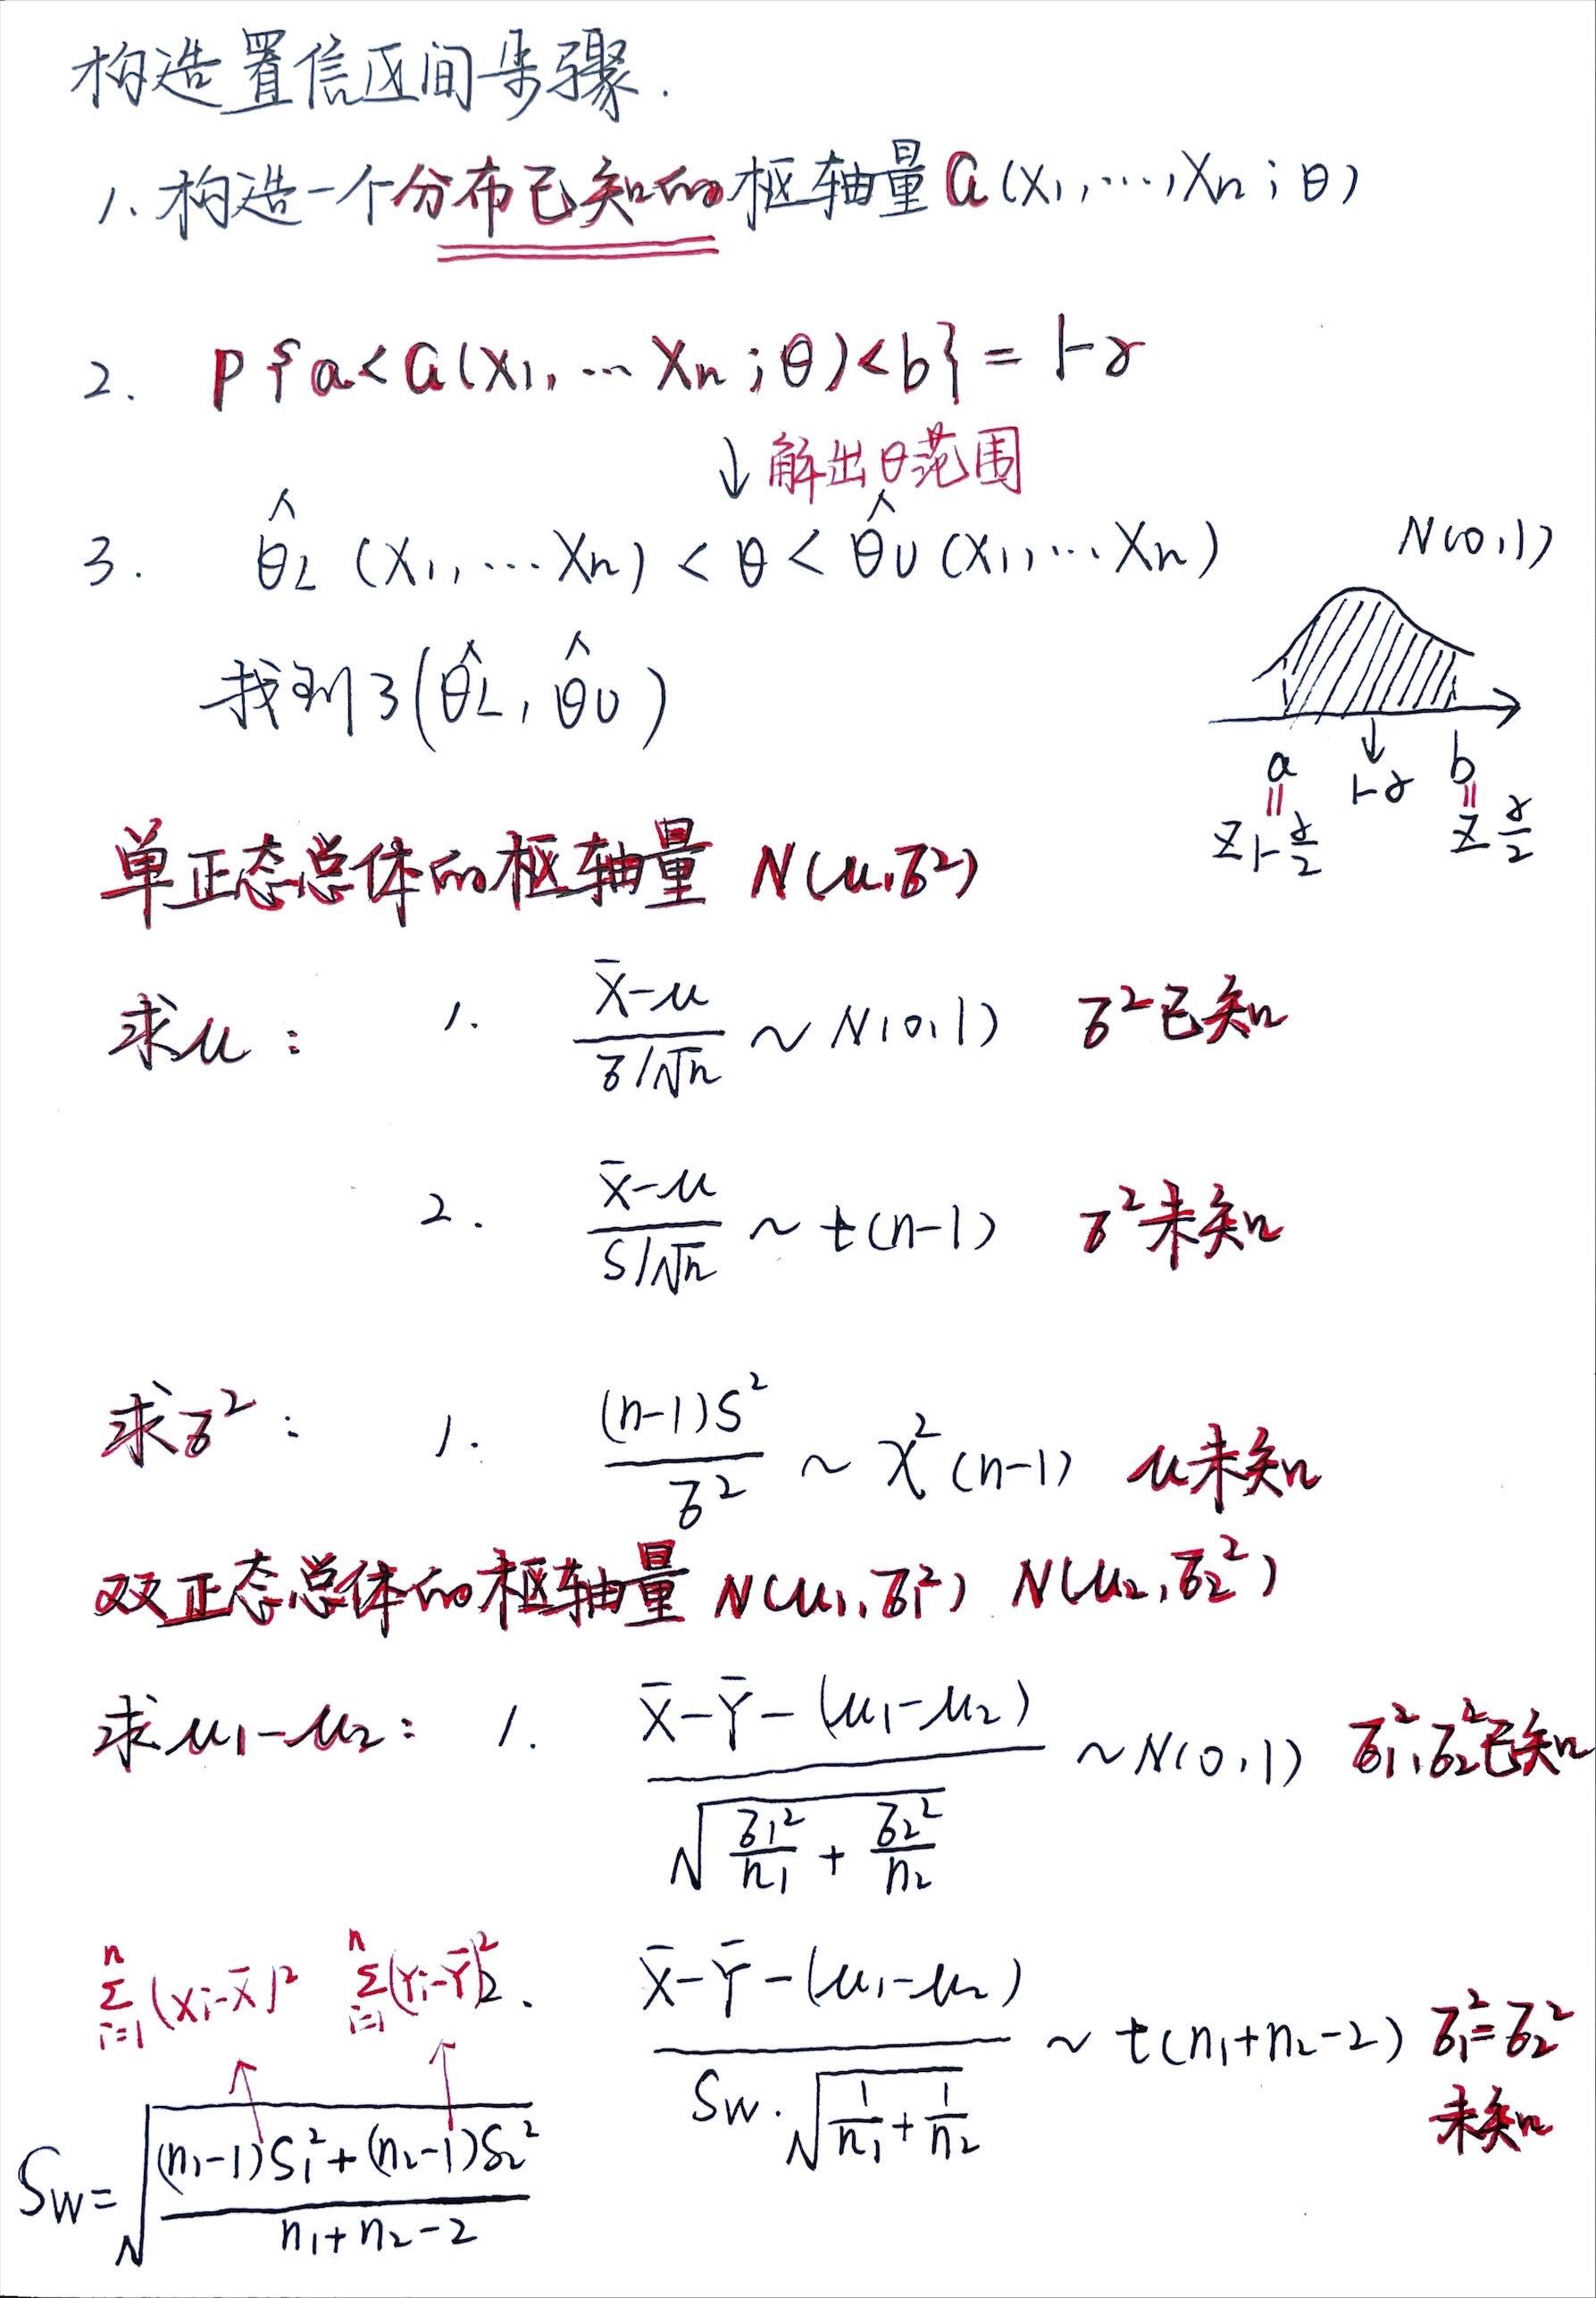 构造置信区间步骤.
1. 构造一个分布已知的枢轴量 G(X₁, …, Xn ; θ)
2. P{a < G(X₁, … Xn ; θ) < b} = 1-α
↓ 解出θ范围
3. θ̂L (X₁, … Xn) < θ < θ̂U (X₁, … Xn)
找到了(θ̂L, θ̂U)
N(0,1)
a ↓ b
|| 1-α ||
Z1-α/2 Zα/2
单正态总体的枢轴量 N(μ,σ²)
求μ: 1. (X̄-μ)/(σ/√n) ~ N(0,1) σ²已知
2. (X̄-μ)/(S/√n) ~ t(n-1) σ²未知
求σ²: 1. (n-1)S²/σ² ~ χ²(n-1) μ未知
双正态总体的枢轴量 N(μ₁,σ₁²) N(μ₂,σ₂²)
求μ₁-μ₂: 1. (X̄-Ȳ-(μ₁-μ₂))/√(σ₁²/n₁ + σ₂²/n₂) ~ N(0,1) σ₁²,σ₂²已知
2. (X̄-Ȳ-(μ₁-μ₂))/(Sw·√(1/n₁ + 1/n₂)) ~ t(n₁+n₂-2) σ₁²=σ₂²
未知
Σⁿᵢ₌₁(Xi-X̄)² Σⁿᵢ₌₁(Yi-Ȳ)²
Sw = √(((n₁-1)S₁²+(n₂-1)S₂²)/(n₁+n₂-2))